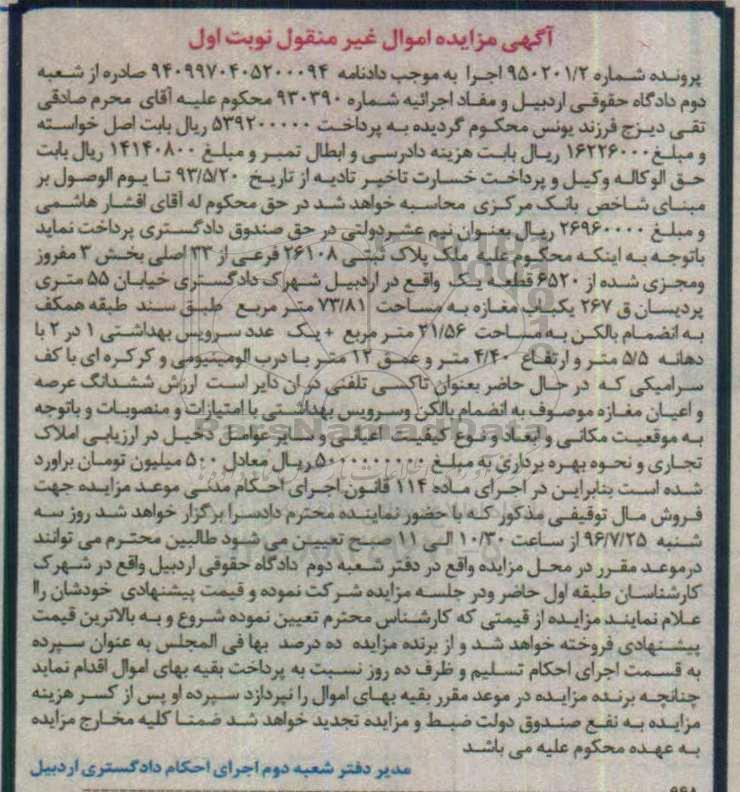 آگهی مزایده اموال غیر منقول نوبت اول
پرونده شماره ۹۵۰۲۰۱/۲ اجرا به موجب دادنامه ۹۴۰۹۹۷۰۴۰۵۲۰۰۰۹۴ صادره از شعبه
دوم دادگاه حقوقی اردبیل و مفاد اجرائیه شماره ۹۳۰۳۹۰ محکوم علیه آقای محرم صادقی
تقی دیزج فرزند یونس محکوم گردیده به پرداخت ۵۳۹۲۰۰۰۰۰ ریال بابت اصل خواسته
و مبلغ ۱۶۲۲۶۰۰۰ ریال بابت هزینه دادرسی و ابطال تمبر و مبلغ ۱۴۱۴۰۸۰۰ ریال بابت
حق الوکاله وکیل و پرداخت خسارت تاخیر تادیه از تاریخ ۹۳/۵/۲۰ تا یوم الوصول بر
مبنای شاخص بانک مرکزی محاسبه خواهد شد در حق محکوم له آقای افشار هاشمی
و مبلغ ۲۶۹۶۰۰۰۰ ریال بعنوان نیم عشردولتی در حق صندوق دادگستری پرداخت نماید
باتوجه به اینکه محکوم علیه ملک پلاک ثبتی ۲۶۱۰۸ فرعی از ۳۳ اصلی بخش ۳ مفروز
ومجزی شده از ۶۵۲۰ قطعه یک واقع در اردبیل شهرک دادگستری خیابان ۵۵ متری
پردیسان ق ۲۶۷ یکباب مغازه به مساحت ۷۳/۸۱ متر مربع طبق سند طبقه همکف
به انضمام بالکن به مساحت ۲۱/۵۶ متر مربع + یک عدد سرویس بهداشتی ۱ در ۲ با
دهانه ۵/۵ متر و ارتفاع ۴/۴۰ متر و عمق ۱۲ متر با درب الومینیومی و کرکره ای با کف
سرامیکی که در حال حاضر بعنوان تاکسی تلفنی در ان دایر است ارزش ششدانگ عرصه
و اعیان مغازه موصوف به انضمام بالکن وسرویس بهداشتی با امتیازات و منصوبات و باتوجه
به موقعیت مکانی و ابعاد و نوع کیفیت اعیانی و سایر عوامل دخیل در ارزیابی املاک
تجاری و نحوه بهره برداری به مبلغ ۵۰۰۰۰۰۰۰۰۰ ریال معادل ۵۰۰ میلیون تومان براورد
شده است بنابراین در اجرای ماده ۱۱۴ قانون اجرای احکام مدنی موعد مزایده جهت
فروش مال توقیفی مذکور که با حضور نماینده محترم دادسرا برگزار خواهد شد روز سه
شنبه ۹۶/۷/۲۵ از ساعت ۱۰/۳۰ الی ۱۱ صبح تعیین می شود طالبین محترم می توانند
درموعد مقرر در محل مزایده واقع در دفتر شعبه دوم دادگاه حقوقی اردبیل واقع در شهرک
کارشناسان طبقه اول حاضر ودر جلسه مزایده شرکت نموده و قیمت پیشنهادی خودشان راا
علام نمایند مزایده از قیمتی که کارشناس محترم تعیین نموده شروع و به بالاترین قیمت
پیشنهادی فروخته خواهد شد و از برنده مزایده ده درصد بها فی المجلس به عنوان سپرده
به قسمت اجرای احکام تسلیم و ظرف ده روز نسبت به پرداخت بقیه بهای اموال اقدام نماید
چنانچه برنده مزایده در موعد مقرر بقیه بهای اموال را نپردازد سپرده او پس از کسر هزینه
مزایده به نفع صندوق دولت ضبط و مزایده تجدید خواهد شد ضمنا کلیه مخارج مزایده
به عهده محکوم علیه می باشد
مدیر دفتر شعبه دوم اجرای احکام دادگستری اردبیل
ParsNamadData